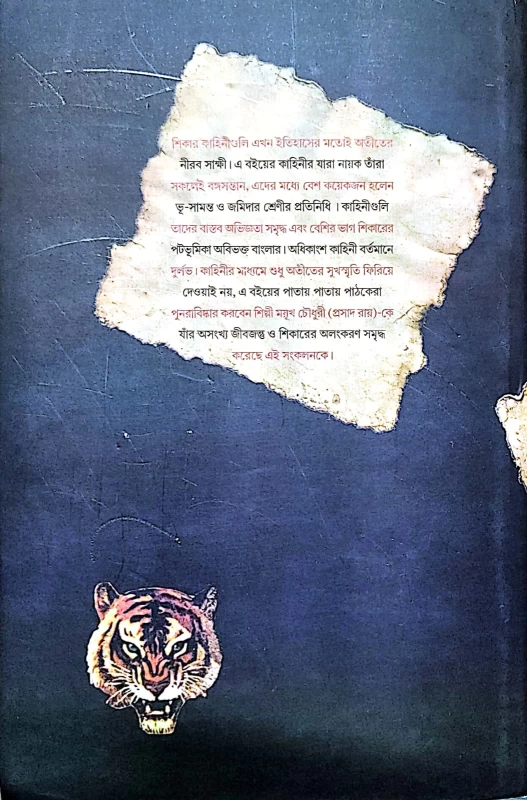 শিকার কাহিনীগুলি এখন ইতিহাসের মতোই অতীতের
নীরব সাক্ষী। এ বইয়ের কাহিনীর যারা নায়ক তাঁরা
সকলেই বঙ্গসন্তান, এদের মধ্যে বেশ কয়েকজন হলেন
ভূ-সামন্ত ও জমিদার শ্রেণীর প্রতিনিধি । কাহিনীগুলি
তাদের বাস্তব অভিজ্ঞতা সমৃদ্ধ এবং বেশির ভাগ শিকারের
পটভূমিকা অবিভক্ত বাংলার। অধিকাংশ কাহিনী বর্তমানে
দুর্লভ। কাহিনীর মাধ্যমে শুধু অতীতের সুখস্মৃতি ফিরিয়ে
দেওয়াই নয়, এ বইয়ের পাতায় পাতায় পাঠকেরা
পুনরাবিষ্কার করবেন শিল্পী ময়ূখ চৌধুরী (প্রসাদ রায়)-কে
যাঁর অসংখ্য জীবজন্তু ও শিকারের অলংকরণ সমৃদ্ধ
করেছে এই সংকলনকে।